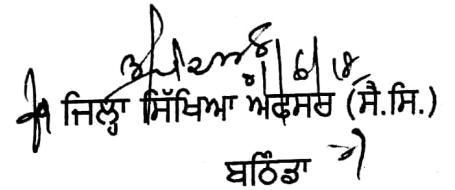 ਜਿਲ੍ਹਾ ਸਿੱਖਿਆ ਅੱਫਸਰ (ਸੈ.ਸਿ.)
ਬਠਿੰਡਾ